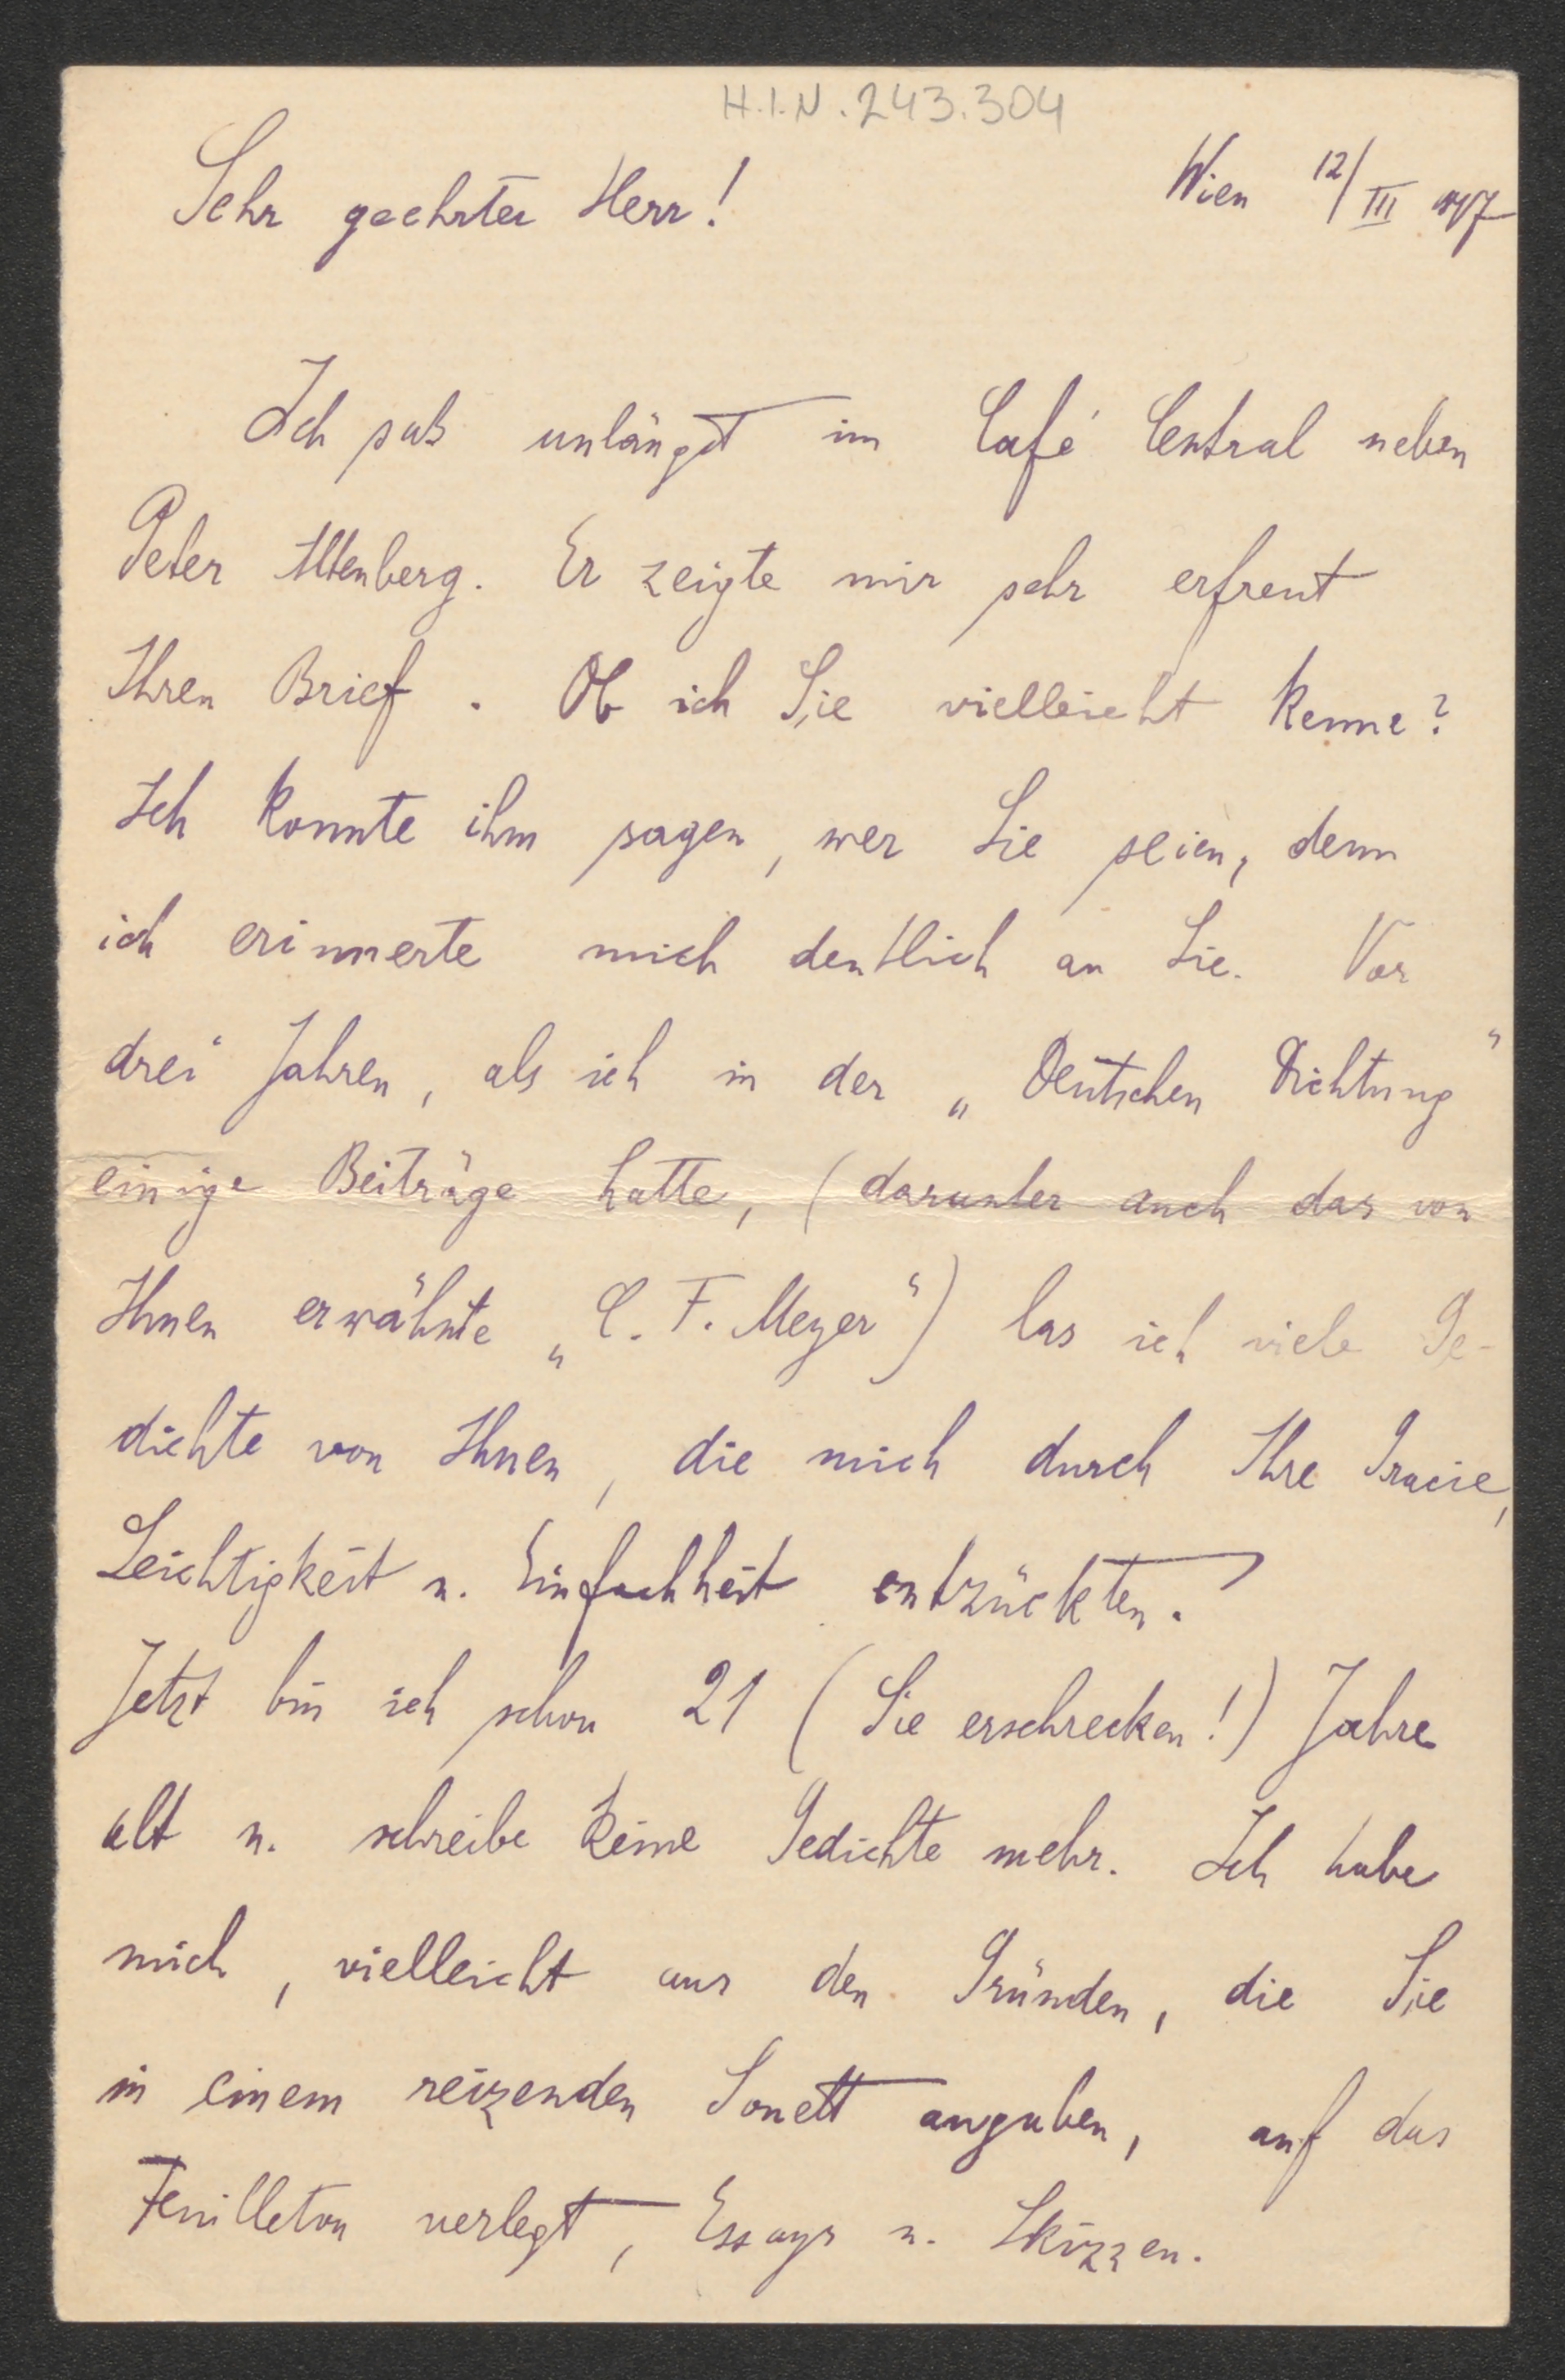 H.I.N. 243.304
Sehr geehrter Herr!
Wien 12/III 1897
Ich sass unlängst im Café Central neben
Peter Altenberg. Er zeigte mir sehr erfreut
Ihren Brief. Ob ich Sie vielleicht kenne?
Ich konnte ihm sagen, wer Sie seien, denn
ich erinnerte mich deutlich an Sie. Vor
drei Jahren, als ich in der „Deutschen Dichtung“
einige Beiträge hatte, (darunter auch das von
Ihnen erwähnte „C. F. Meyer“) las ich viele Ge-
dichte von Ihnen, die mich durch Ihre Gracie,
Leichtigkeit u. Einfachheit entzückten.
Jetzt bin ich schon 21 (Sie erschrecken!) Jahre
alt u. schreibe keine Gedichte mehr. Ich habe
mich, vielleicht aus den Gründen, die Sie
in einem reizenden Sonett angaben, auf das
Feuilleton verlegt, Essays u. Skizzen.